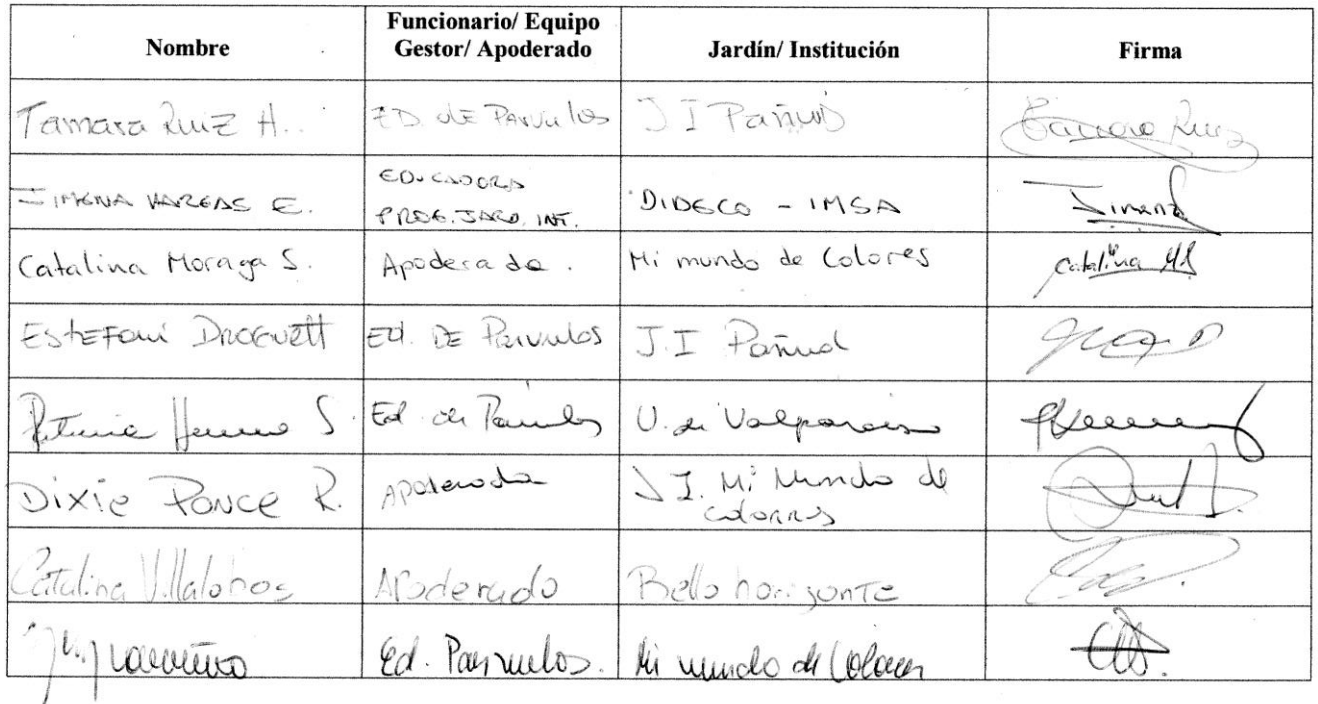 Nombre
Funcionario/ Equipo
Gestor/ Apoderado
Jardín/ Institución
Firma
Tamara Ruiz H. ED. de Parvulos J I Pañud Ruiz
JIMENA VARGAS E. EDUCADORA
PROG. JARD. INT. DIDECO - IMSA Jimena
Catalina Moraga S. Apoderada. Mi mundo de Colores Catalina
Estefani Droguett Ed. DE Parvulos J.I Pañud
S. Ed. de Parvulos U. de Valparaiso
Dixie Ponce R. Apoderada J I. Mi Mundo de
colores
Catalina Villalobos Apoderado Bello horizonte
Ed. Parvulos. Mi mundo de Colores